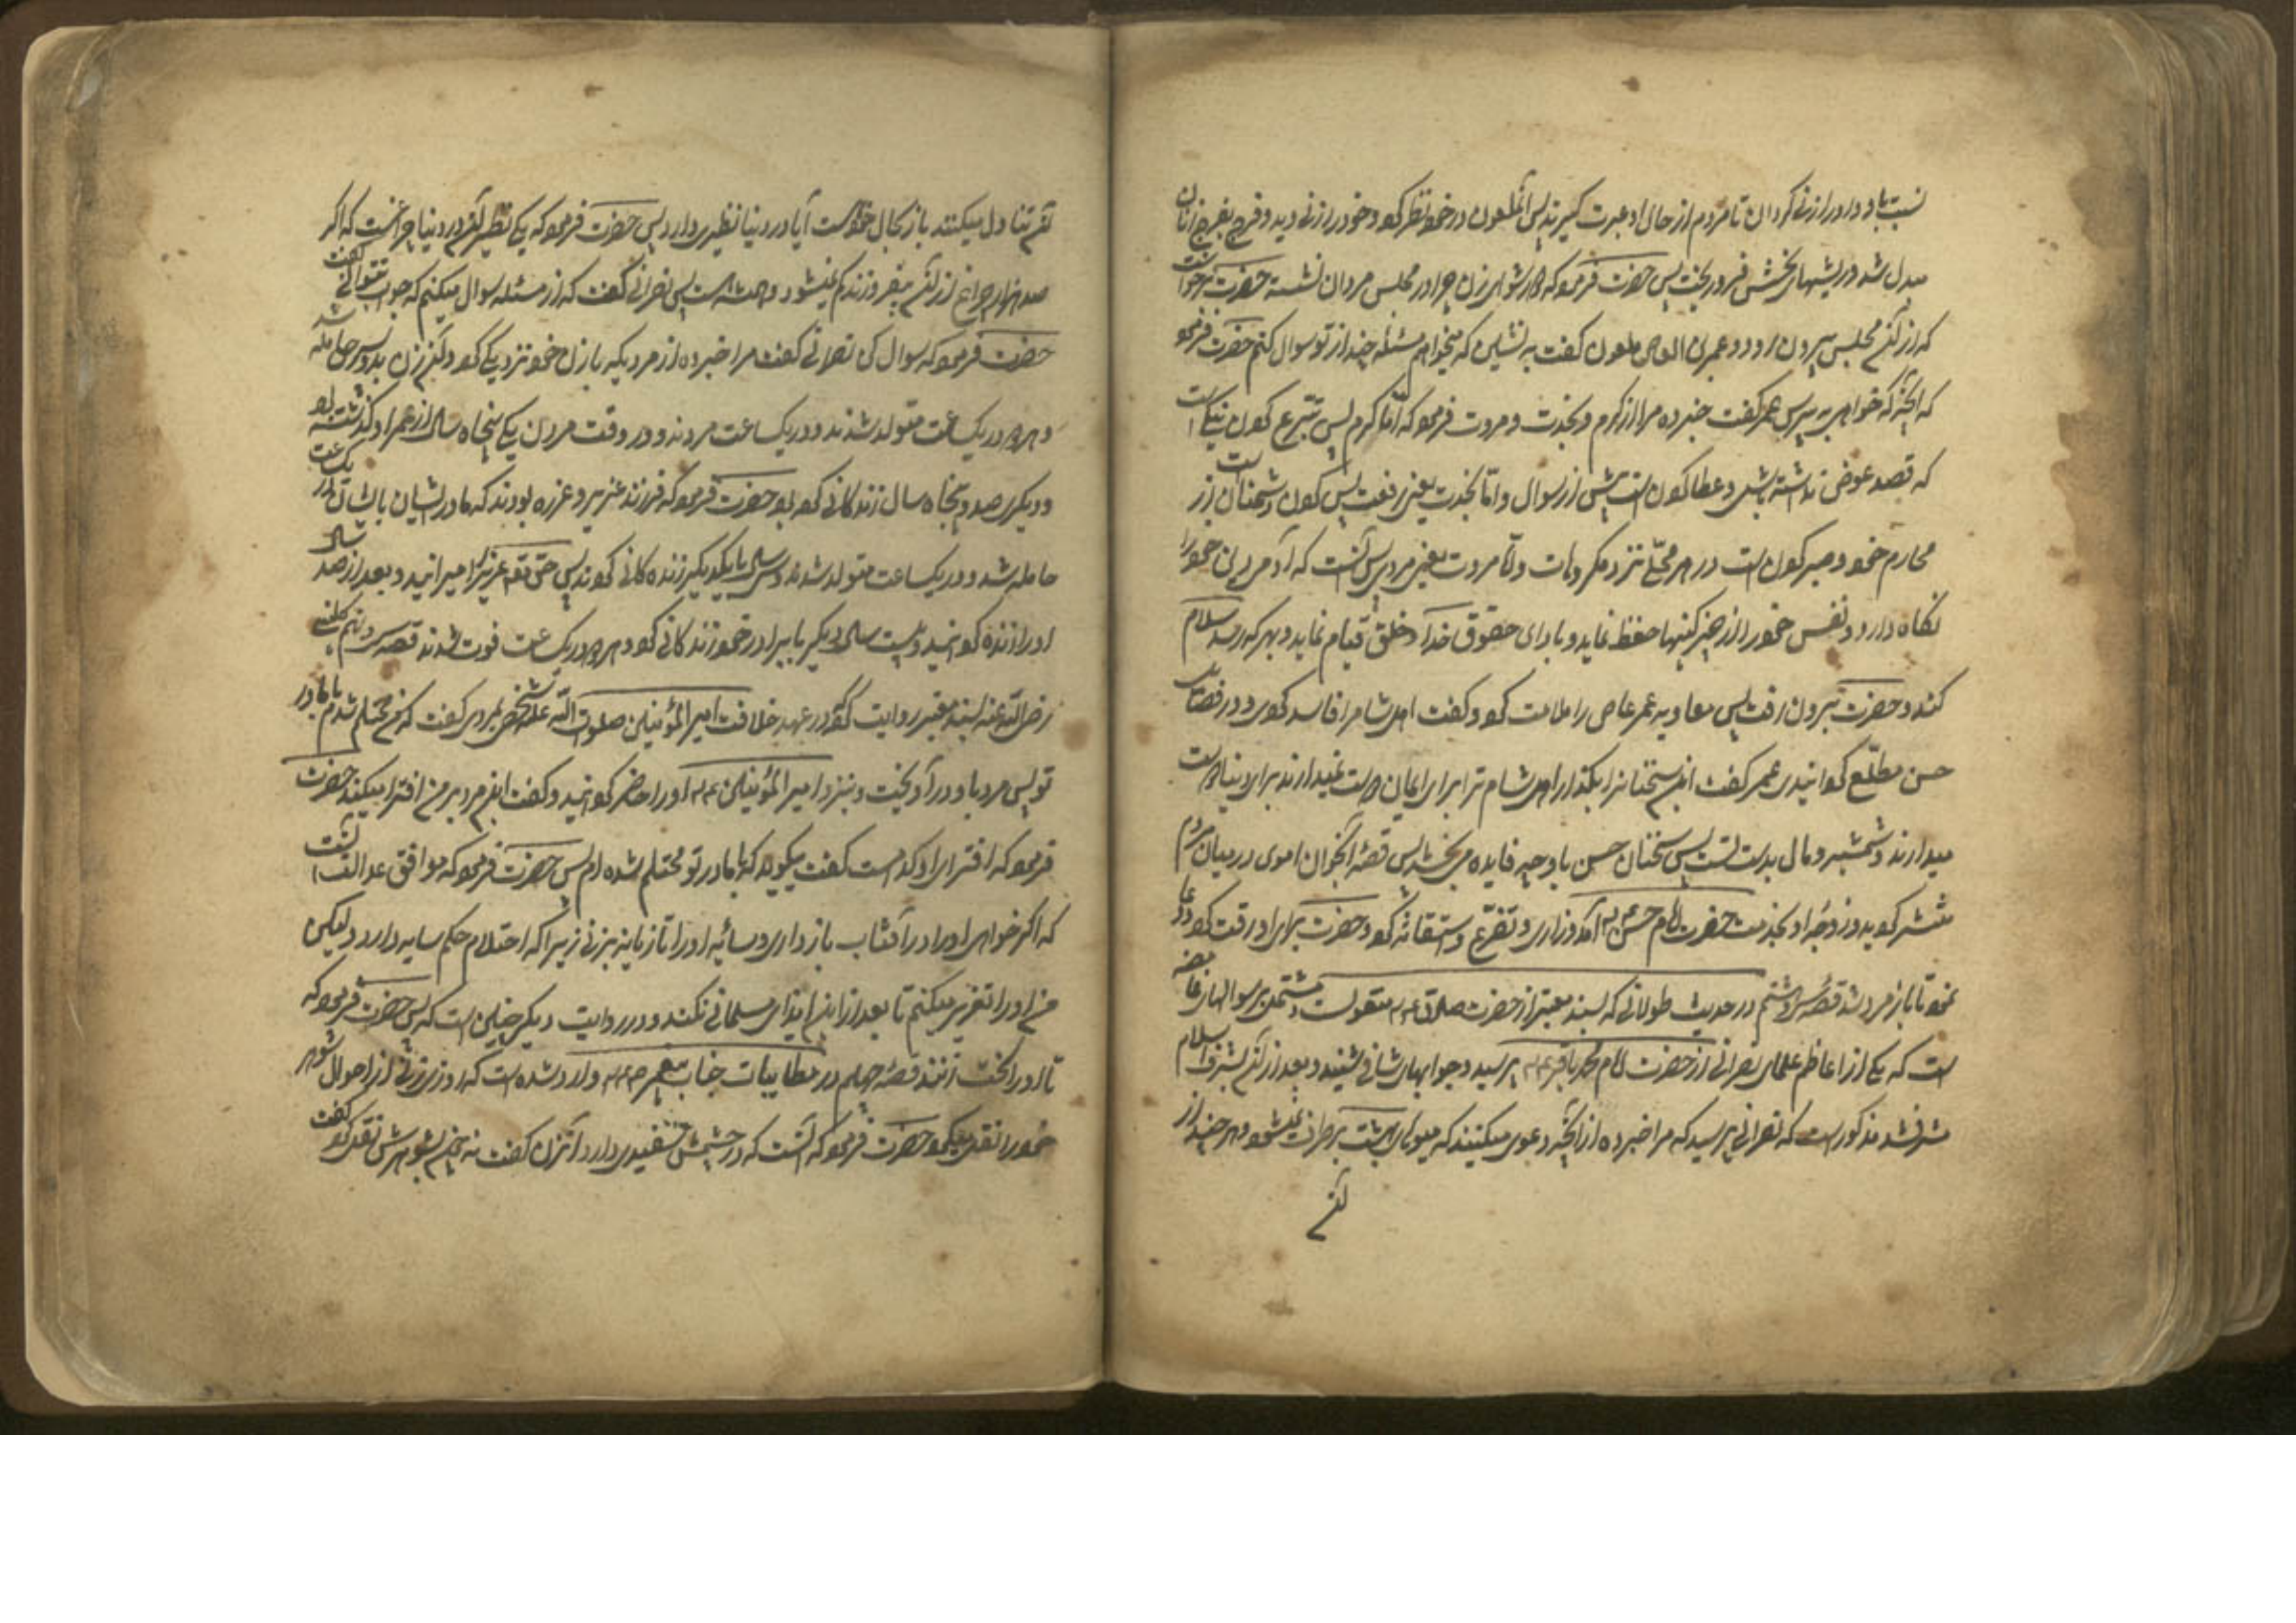 نسبت باو دارد او را زنی گردان تا مردم از حال او عبرت گیرند پس آنملعون در خود نظر کرد و خود را زنی دید و فرج بفرج زنان
مبدل شد و ریشهای نحسش فرو ریخت پس حضرت فرمود که دور شو ای زن چرا در مجلس مردان نشسته حضرت میخواست
که از آن مجلس بیرون رود و عمرو ابن العاص ملعون گفت به نشین که میخواهم مسئله چند از تو سوال کنم حضرت فرمود
که آنچه که خواهی به پرس عمر گفت خبر ده مرا از کرم و نجدت و مروت فرمود که اما کرم پس تبرع کردن نیکیست
که قصد عوض نداشته باشی و عطا کردن است پیش از سوال و اما نجدت یعنی رفعت پس دفع کردن دشمنان از
محارم خود و صبر کردن است در هر محلی نزد مکروهات و اما مروت یعنی مردی پس آنست که آدمی دین خود را
نگاه دارد و نفس خود را از کینها حفظ نماید و بادای حقوق خدا و خلق قیام نماید و بهر که رسد سلام
کند و حضرت بیرون رفت پس معاویه عمر عاص را ملامت کرد و گفت اهل شام را فاسد کردی و در فضایل
حسن مطلع گردانیدی عمر گفت این سخنانرا بگذار اهل شام ترا برای ایمان دوست نمیدارند برای دنیا دوست
میدارند و شمشیر و مال بدست تست پس سخنان حسن باو چه فایده می بخشد پس قصه آنجوان اموی در میان مردم
منتشر گردید و زوجه او بخدمت حضرت امام حسن ع آمد و زاری و تضرع و استغاثه کرد و حضرت برای او رقت کرد و دعا
نمود تا باز مرد شد قصه سی و هشتم در حدیث طولانی که بسند معتبر از حضرت صادق ع منقولست و مشتمل بر سوالهای غامضه
است که یکی از اعاظم علمای نصرانی از حضرت امام محمد باقر ع پرسید و جوابهای شافی شنید و بعد از آن بشرف اسلام
مشرف شد مذکور است که نصرانی پرسید که مرا خبر ده از آنچه دعوی میکنند که میوهای بهشت برطرف نمیشود و هر چند از
آن
تقر تناول میکنند باز بحال خود است آیا در دنیا نظیری دارد پس حضرت فرمود که یکی نظیر آن در دنیا چراغست که اگر
صد هزار چراغ از آن بیفروزند کم نمیشود و همیشه هست پس نصرانی گفت که از مسئله سوال میکنم که جواب نتوانی گفت
حضرت فرمود که سوال کن نصرانی گفت مرا خبر ده از مردیکه با زن خود نزدیکی کرد و آن زن بدو پسر حامله شد
و هر دو در یکساعت متولد شدند و در یکساعت مردند و در وقت مردن یکی پنجاه سال از عمر او گذشته بود
و دیگری صد و پنجاه سال زندگانی کرده بود حضرت فرمود که فرزند عزیر و عزره بودند که مادر ایشان بایشان در یکساعت
حامله شد و در یکساعت متولد شدند و سی سال با یکدیگر زنده کانی کردند پس حق تعالی عزیر را میرانید و بعد از صد سال
او را زنده گردانید و بیست سال دیگر با برادر خود زندگانی کرد و هر دو در یکساعت فوت شدند قصه سی و نهم کلینی
رضی الله عنه بسند معتبر روایت کرده که در عهد خلافت امیر المؤمنین صلوات الله علیه شخصی بمردی گفت که من محتلم شدم با مادر
تو پس مرد باو در آویخت و بنزد امیر المؤمنین ع او را حاضر گردانید و گفت این مرد بر من افترا میکند حضرت
فرمود که افترای او کدامست گفت میگوید که با مادر تو محتلم شده ام پس حضرت فرمود که موافق عدالت آنست
که اگر خواهی او را در آفتاب باز داری و سایه او را تازیانه بزنی زیرا که احتلام حکم سایه دارد ولیکن
من او را تعزیر میکنم تا بعد از این ایذای مسلمانی نکند و در روایت دیگر چنین است که پس حضرت فرمود که
تا او را سخت زدند قصه چهلم در مطایبات جناب پیغمبر ص وارد شده است که روزی زنی از احوال شوهر
خود را نقل میکرد حضرت فرمود که آنست که در چشمش سفیدی دارد آنزن گفت نه چون بشوهرش نقل کرد گفت